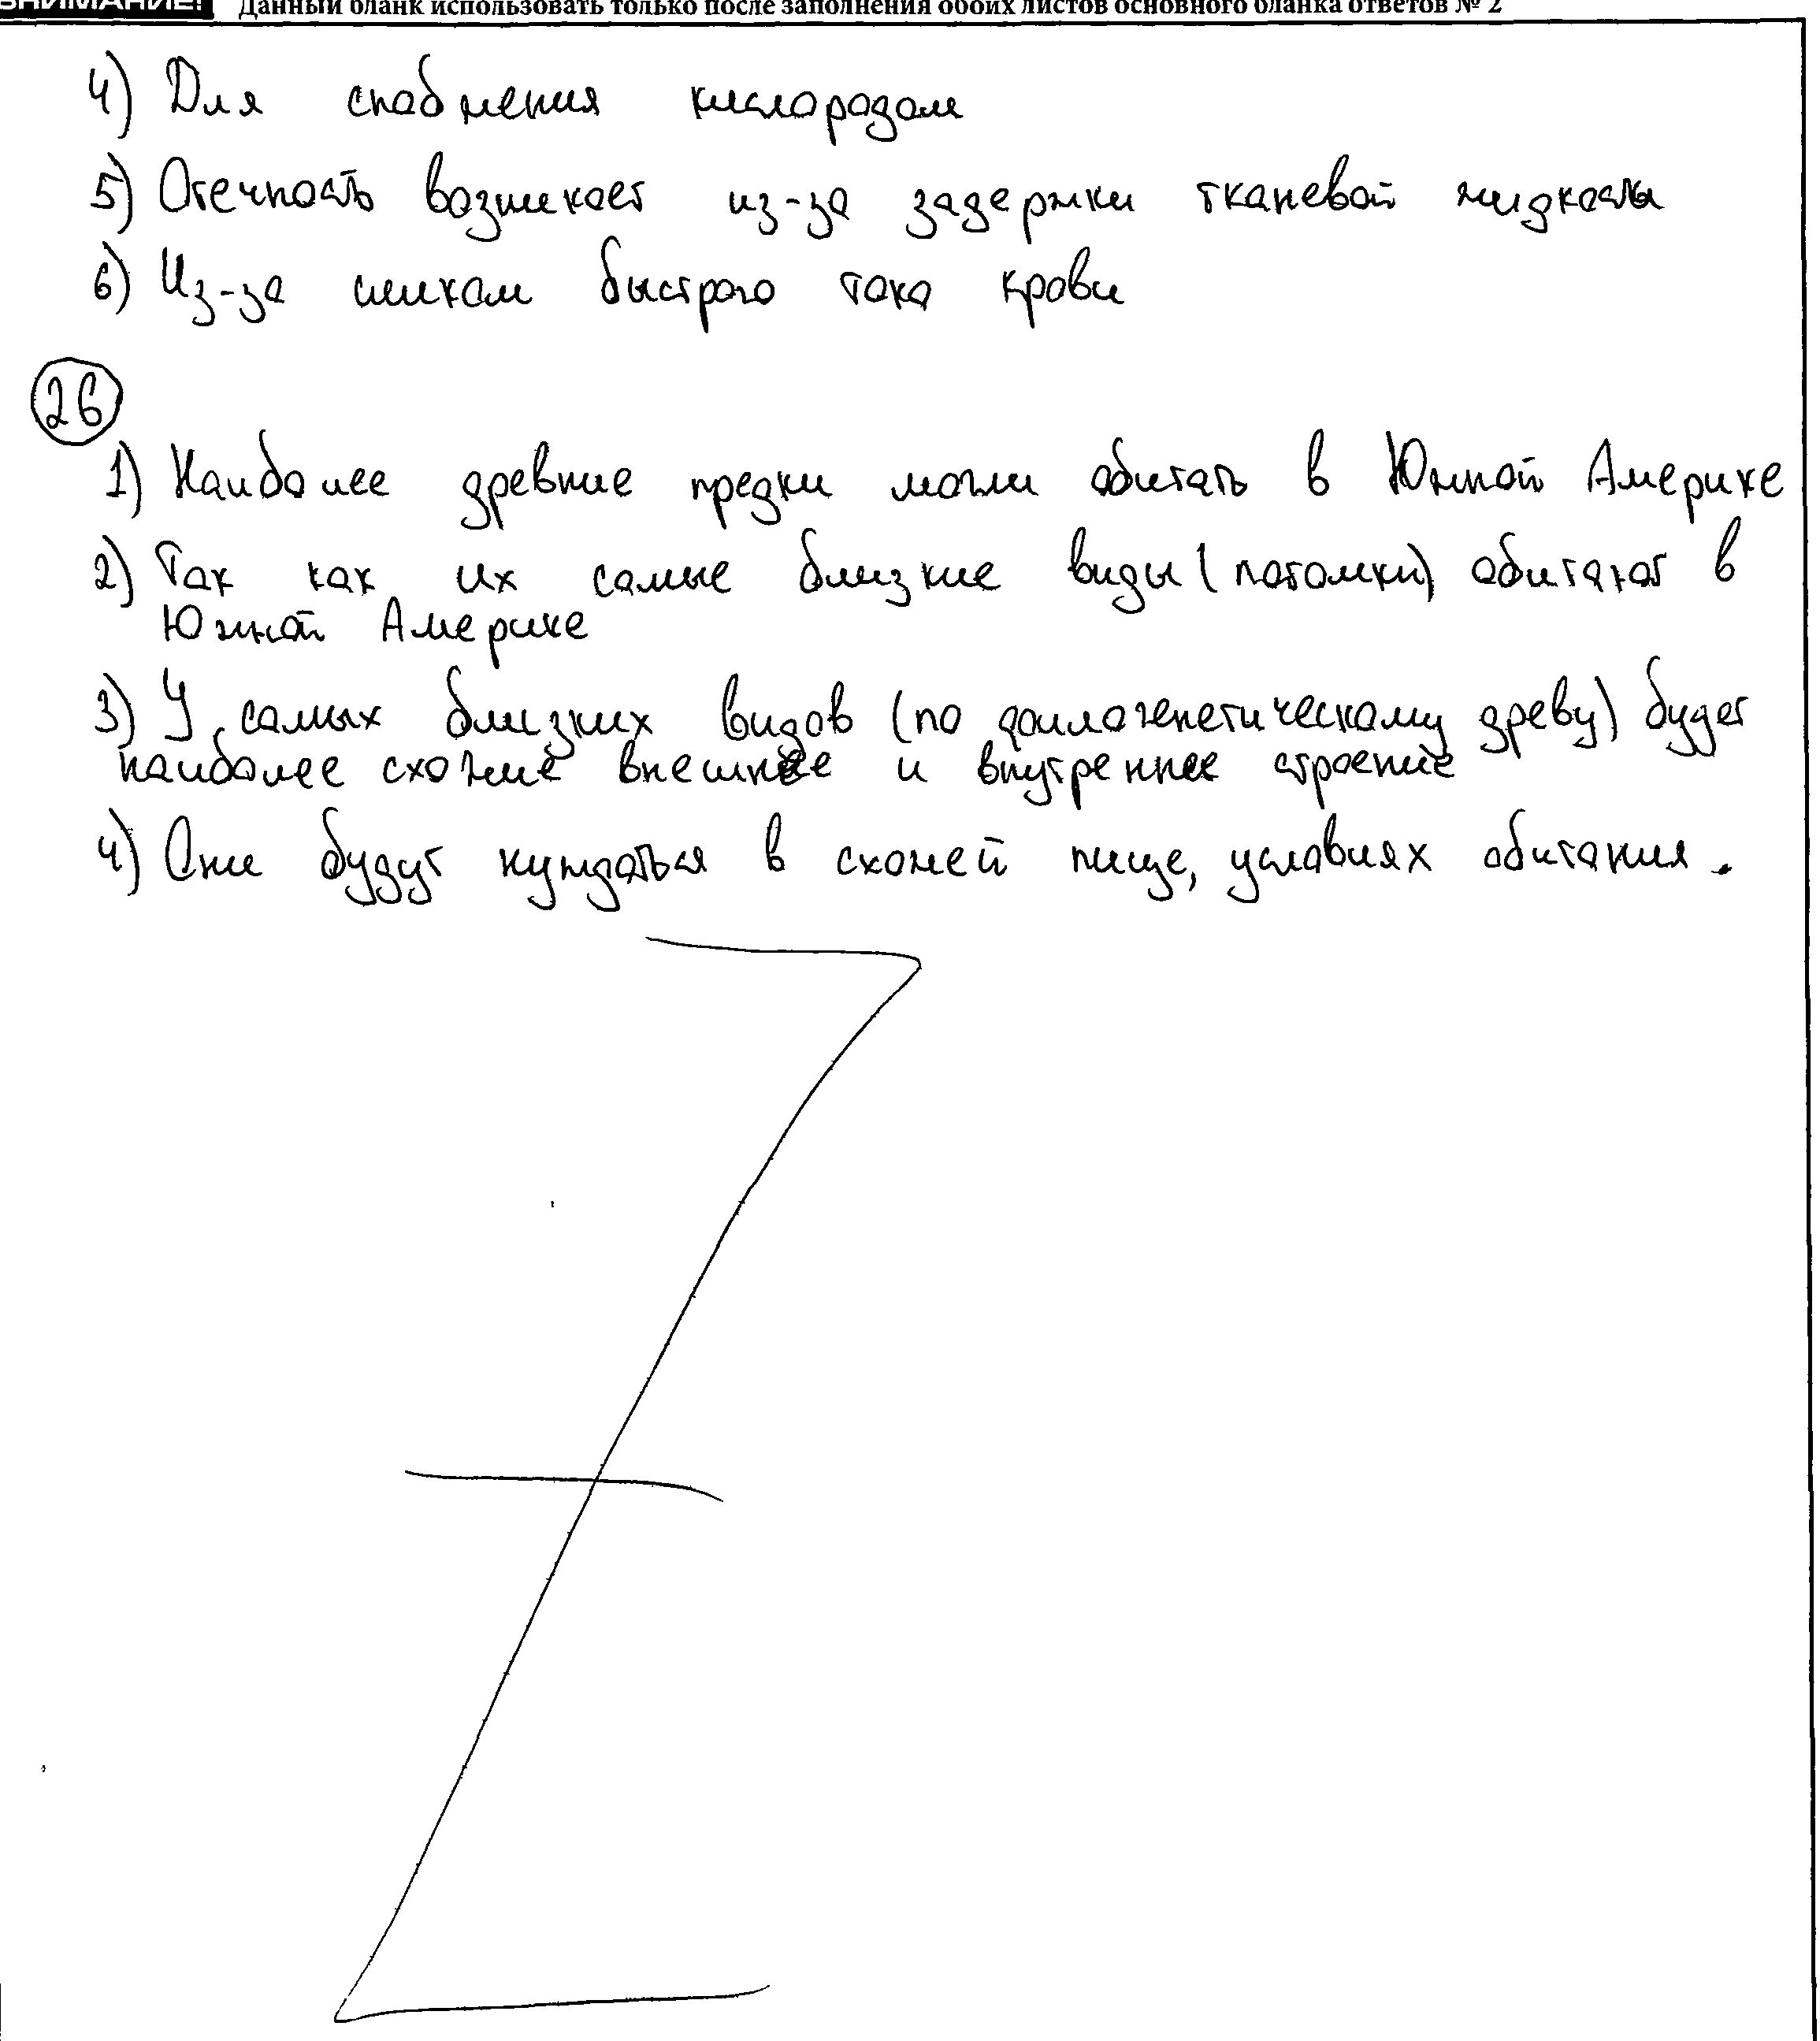 ВНИМАНИЕ! Данный бланк использовать только после заполнения обоих листов основного бланка ответов № 2
4) Для снабжения кислородом
5) Отечность возникает из-за задержки тканевой жидкости
6) Из-за слишком быстрого тока крови
26
1) Наиболее древние предки могли обитать в Южной Америке
2) Так как их самые близкие виды (потомки) обитают в
Южной Америке
3) У самых близких видов (по филогенетическому древу) будет
наиболее схожие внешнее и внутреннее строение
4) Они будут нуждаться в схожей пище, условиях обитания.